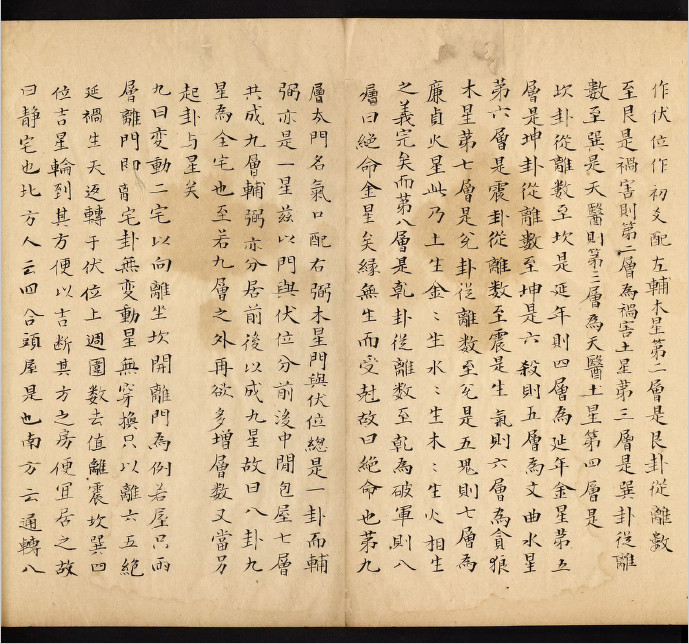 作伏位作初爻配左輔木星第二層是艮卦從離數
至艮是禍害則第二層為禍害土星第三層是巽卦從離
數至巽是天醫則第三層為天醫土星第四層是
坎卦從離數至坎是延年則四層為延年金星第五
層是坤卦從離數至坤是六殺則五層為文曲水星
第六層是震卦從離數至震是生氣則六層為貪狼
木星第七層是兌卦從離數至兌是五鬼則七層為
廉貞火星此乃土生金〻生水〻生木〻生火相生
之義完矣而第八層是乾卦從離數至乾為破軍則八
層曰絶命金星矣緣無生而受尅故曰絶命也第九
層本門名氣口配右弼木星門與伏位總是一卦而輔
弼亦是一星茲以門與伏位分前後中間包屋七層
共成九層輔弼亦分居前後以成九星故曰八卦九
星為全宅也至若九層之外再欲多增層數又當另
起卦与星矣
九曰変動二宅以向離坐坎開離門為例若屋只兩
層離門即為宅卦無変動星無穿換只以離六五絶
延禍生天返轉于伏位上週圍數去值離震坎巽四
位吉星輪到其方便以吉斷其方之房便宜居之故
曰静宅也北方人云四合頭屋是也南方云通轉八